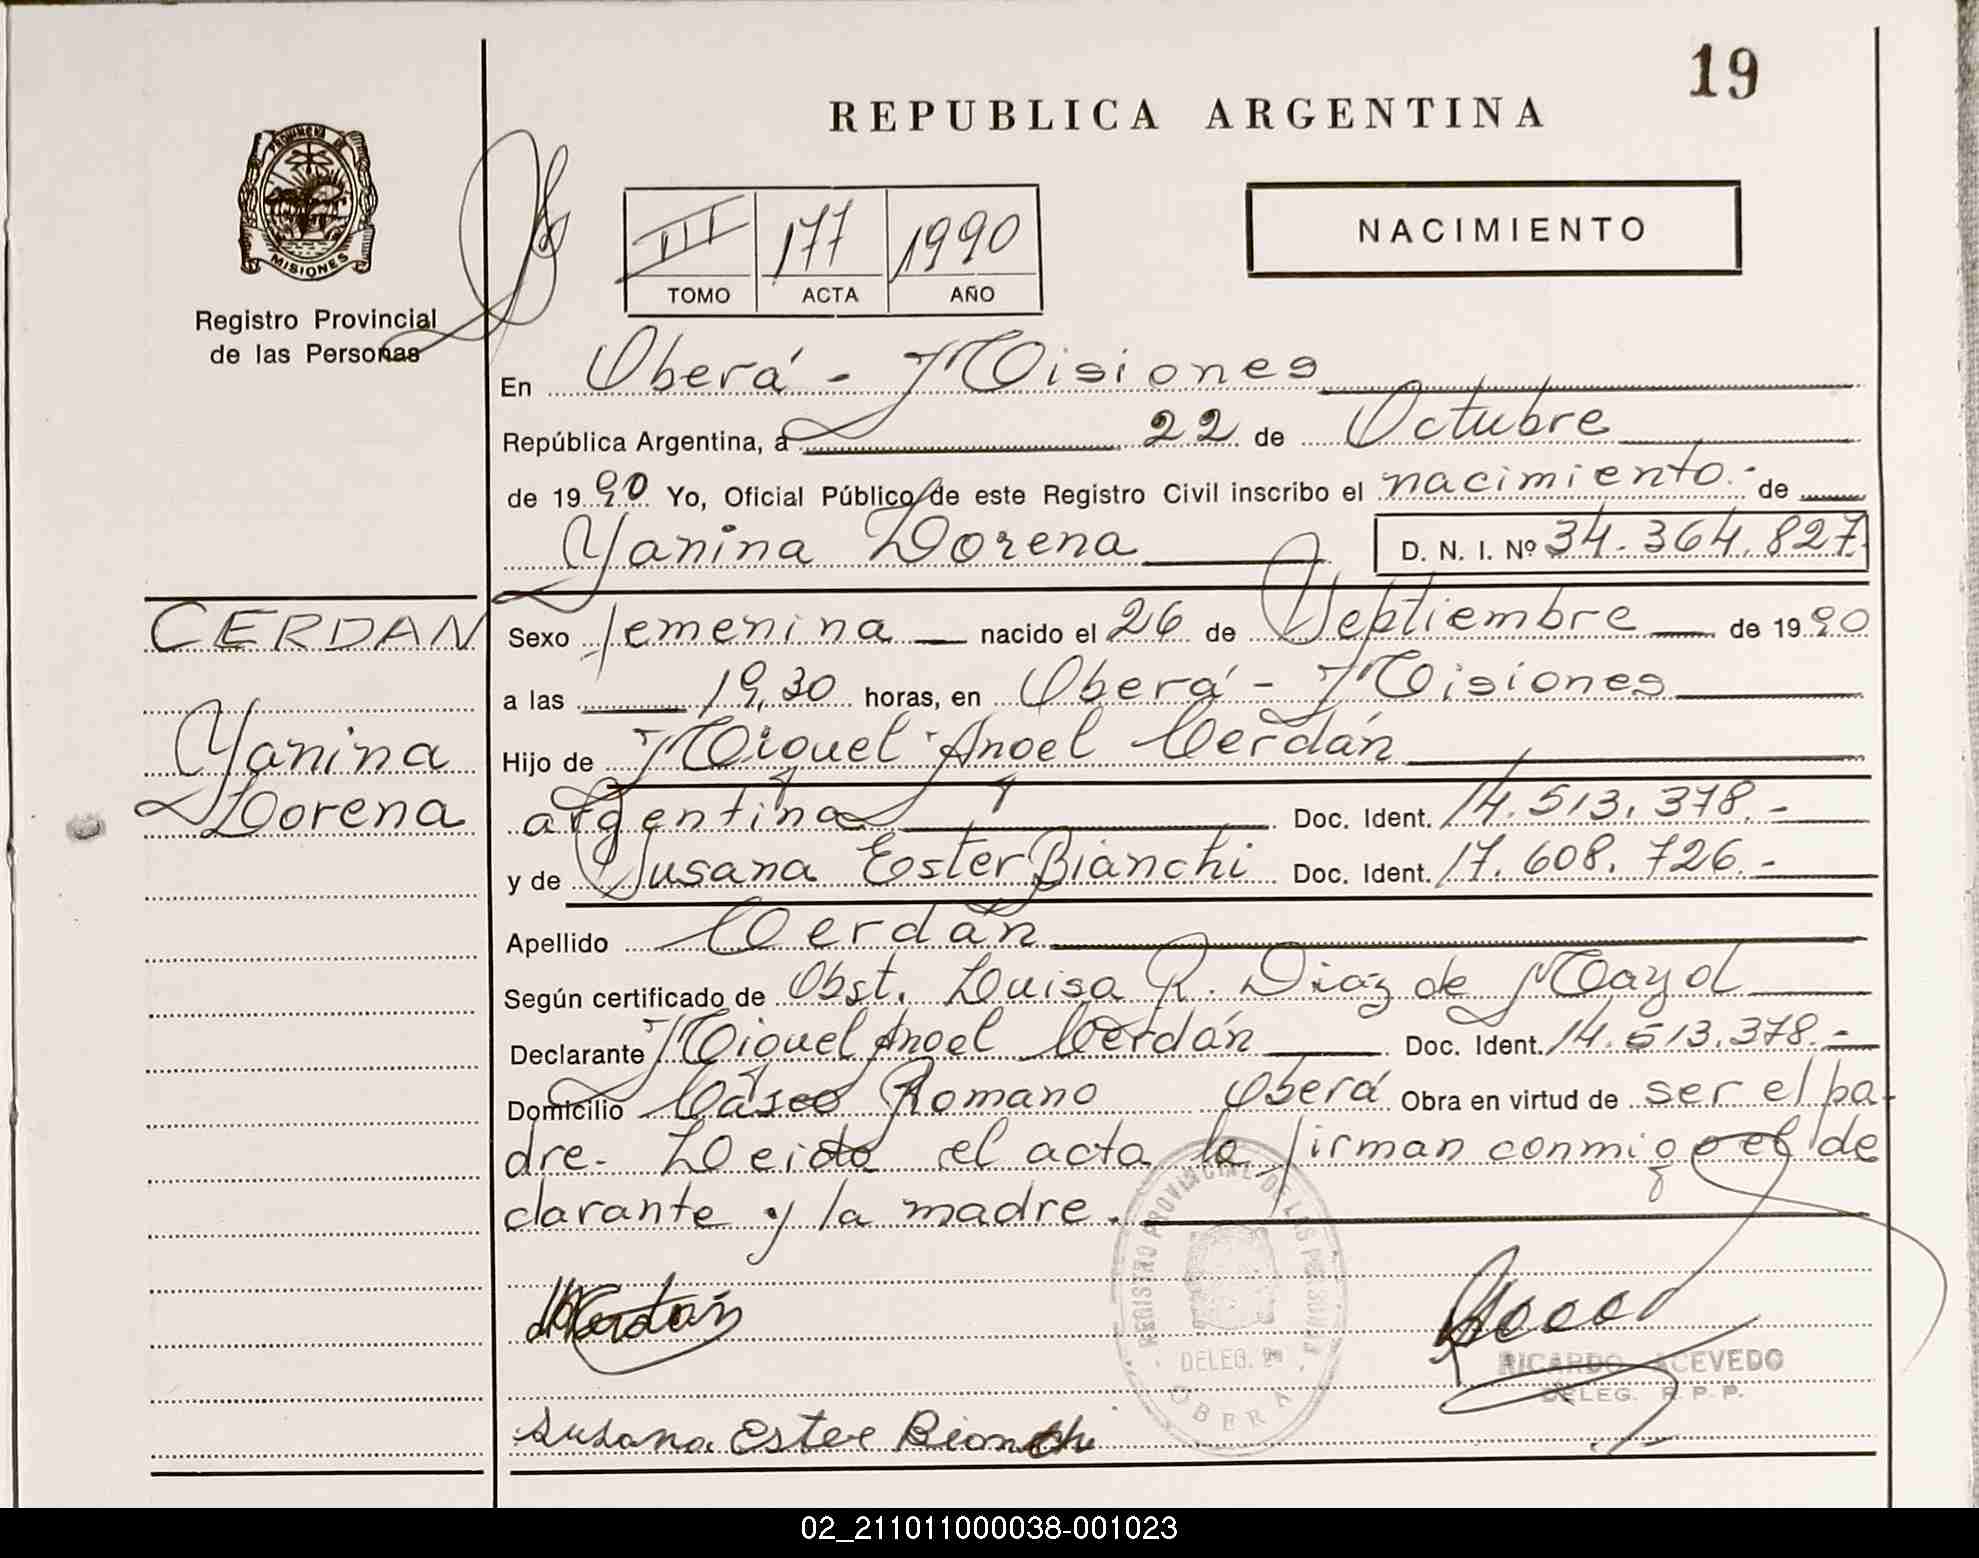 19
REPUBLICA ARGENTINA
PROVINCIA DE
MISIONES
Registro Provincial
de las Personas
III 177 1990
TOMO ACTA AÑO
NACIMIENTO
En Oberá - Misiones
República Argentina, a 22 de Octubre
de 1990 Yo, Oficial Público de este Registro Civil inscribo el nacimiento.- de
Yanina Lorena D. N. I. Nº 34.364.827
CERDAN
Yanina
Lorena
Sexo femenina nacido el 26 de Septiembre de 1990
a las 19,30 horas, en Oberá - Misiones
Hijo de Miguel Angel Cerdán
argentina Doc. Ident. 14.513.378.-
y de Susana Ester Bianchi Doc. Ident. 17.608.726.-
Apellido Cerdán
Según certificado de Obst. Luisa R. Diaz de Mayol
Declarante Miguel Angel Cerdán Doc. Ident. 14.513.378.-
Domicilio Paseo Romano Oberá Obra en virtud de ser el pa-
dre. Leida el acta la firman conmigo el de
clarante y la madre.
REGISTRO PROVINCIAL DE LAS PERSONAS
DELEG.
OBERA
MCerdán
RICARDO ACEVEDO
DELEG. R. P. P.
Susana Ester Bianchi
02_211011000038-001023